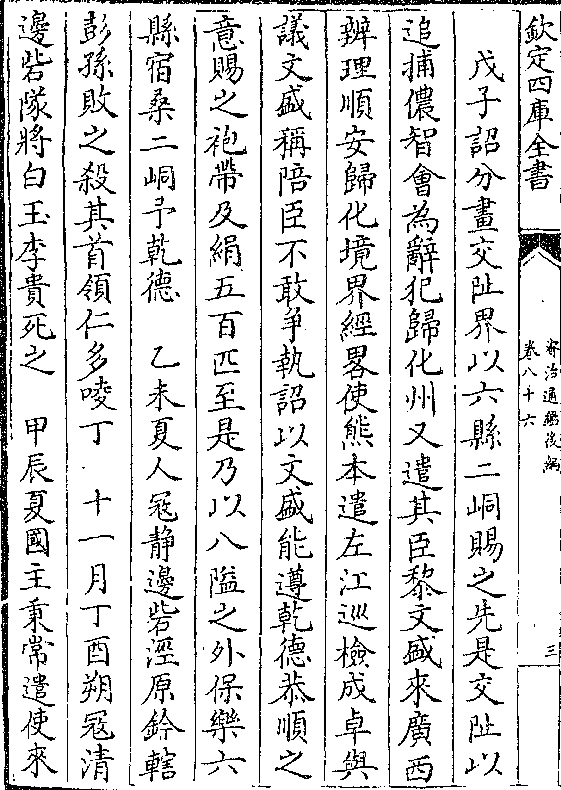 欽定四庫全書
資治通鑑後編
卷八十六
三
戊子詔分畫交阯界以六縣二峒賜之先是交阯以
追捕儂智會為辭犯歸化州又遣其臣黎文盛來廣西
辨理順安歸化境界經畧使熊本遣左江巡檢成卓與
議文盛稱陪臣不敢爭執詔以文盛能遵乾德恭順之
意賜之袍帶及絹五百匹至是乃以八隘之外保樂六
縣宿桑二峒予乾德　乙未夏人冦静邊砦涇原鈐轄
彭孫敗之殺其首領仁多唆丁　十一月丁酉朔冦清
邊砦隊將白玉李貴死之　甲辰夏國主秉常遣使來